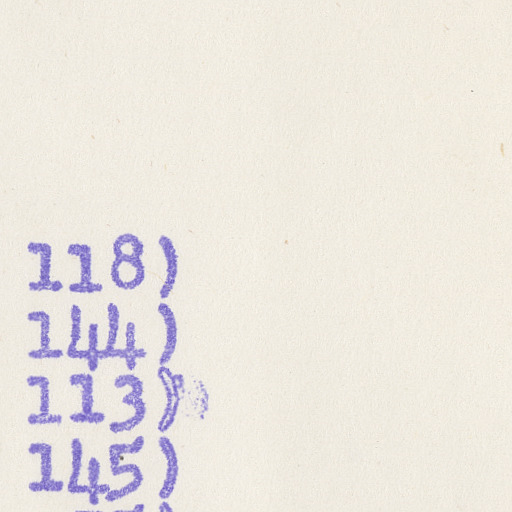 118)
144)
113)
145)